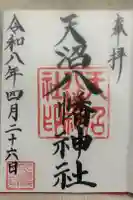 奉拝
天沼八幡神社
令和八年四月二十六日